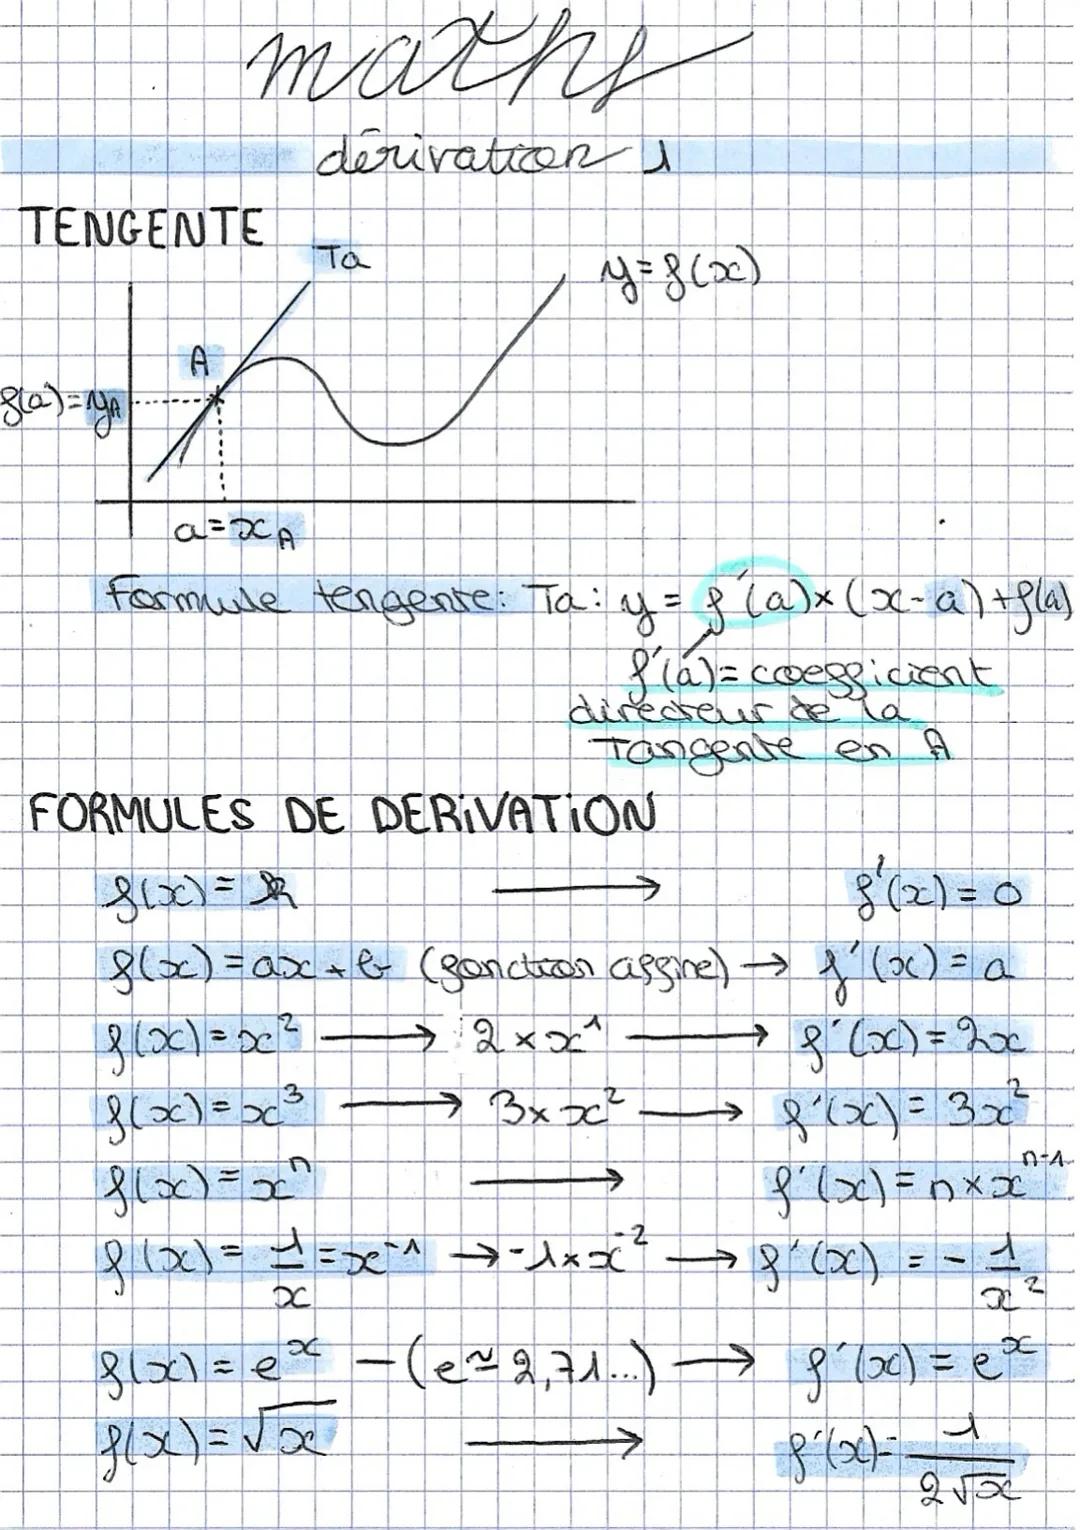 maths
dérivation 1
TENGENTE
Ta
y=f(x)
A
f(a)=yA
a=xA
Formule tengente: Ta: y = f'(a)×(x-a)+f(a)
f'(a)= coefficient
directeur de la
Tangente en A
FORMULES DE DERIVATION
f(x)= k ⟶ f'(x)=0
f(x)=ax+b (fonction affine) → f'(x)=a
f(x)=x² ⟶ 2×x¹ ⟶ f'(x)=2x
f(x)=x³ ⟶ 3×x² ⟶ f'(x)=3x²
f(x)=xⁿ ⟶ f'(x)=n×xⁿ⁻¹
f(x)= 1/x =x⁻¹ → -1×x⁻² ⟶ f'(x) = - 1/x²
f(x)=eˣ —(e≃2,71...) ⟶ f'(x)=eˣ
f(x)=√x ⟶ f'(x)= 1/2√x